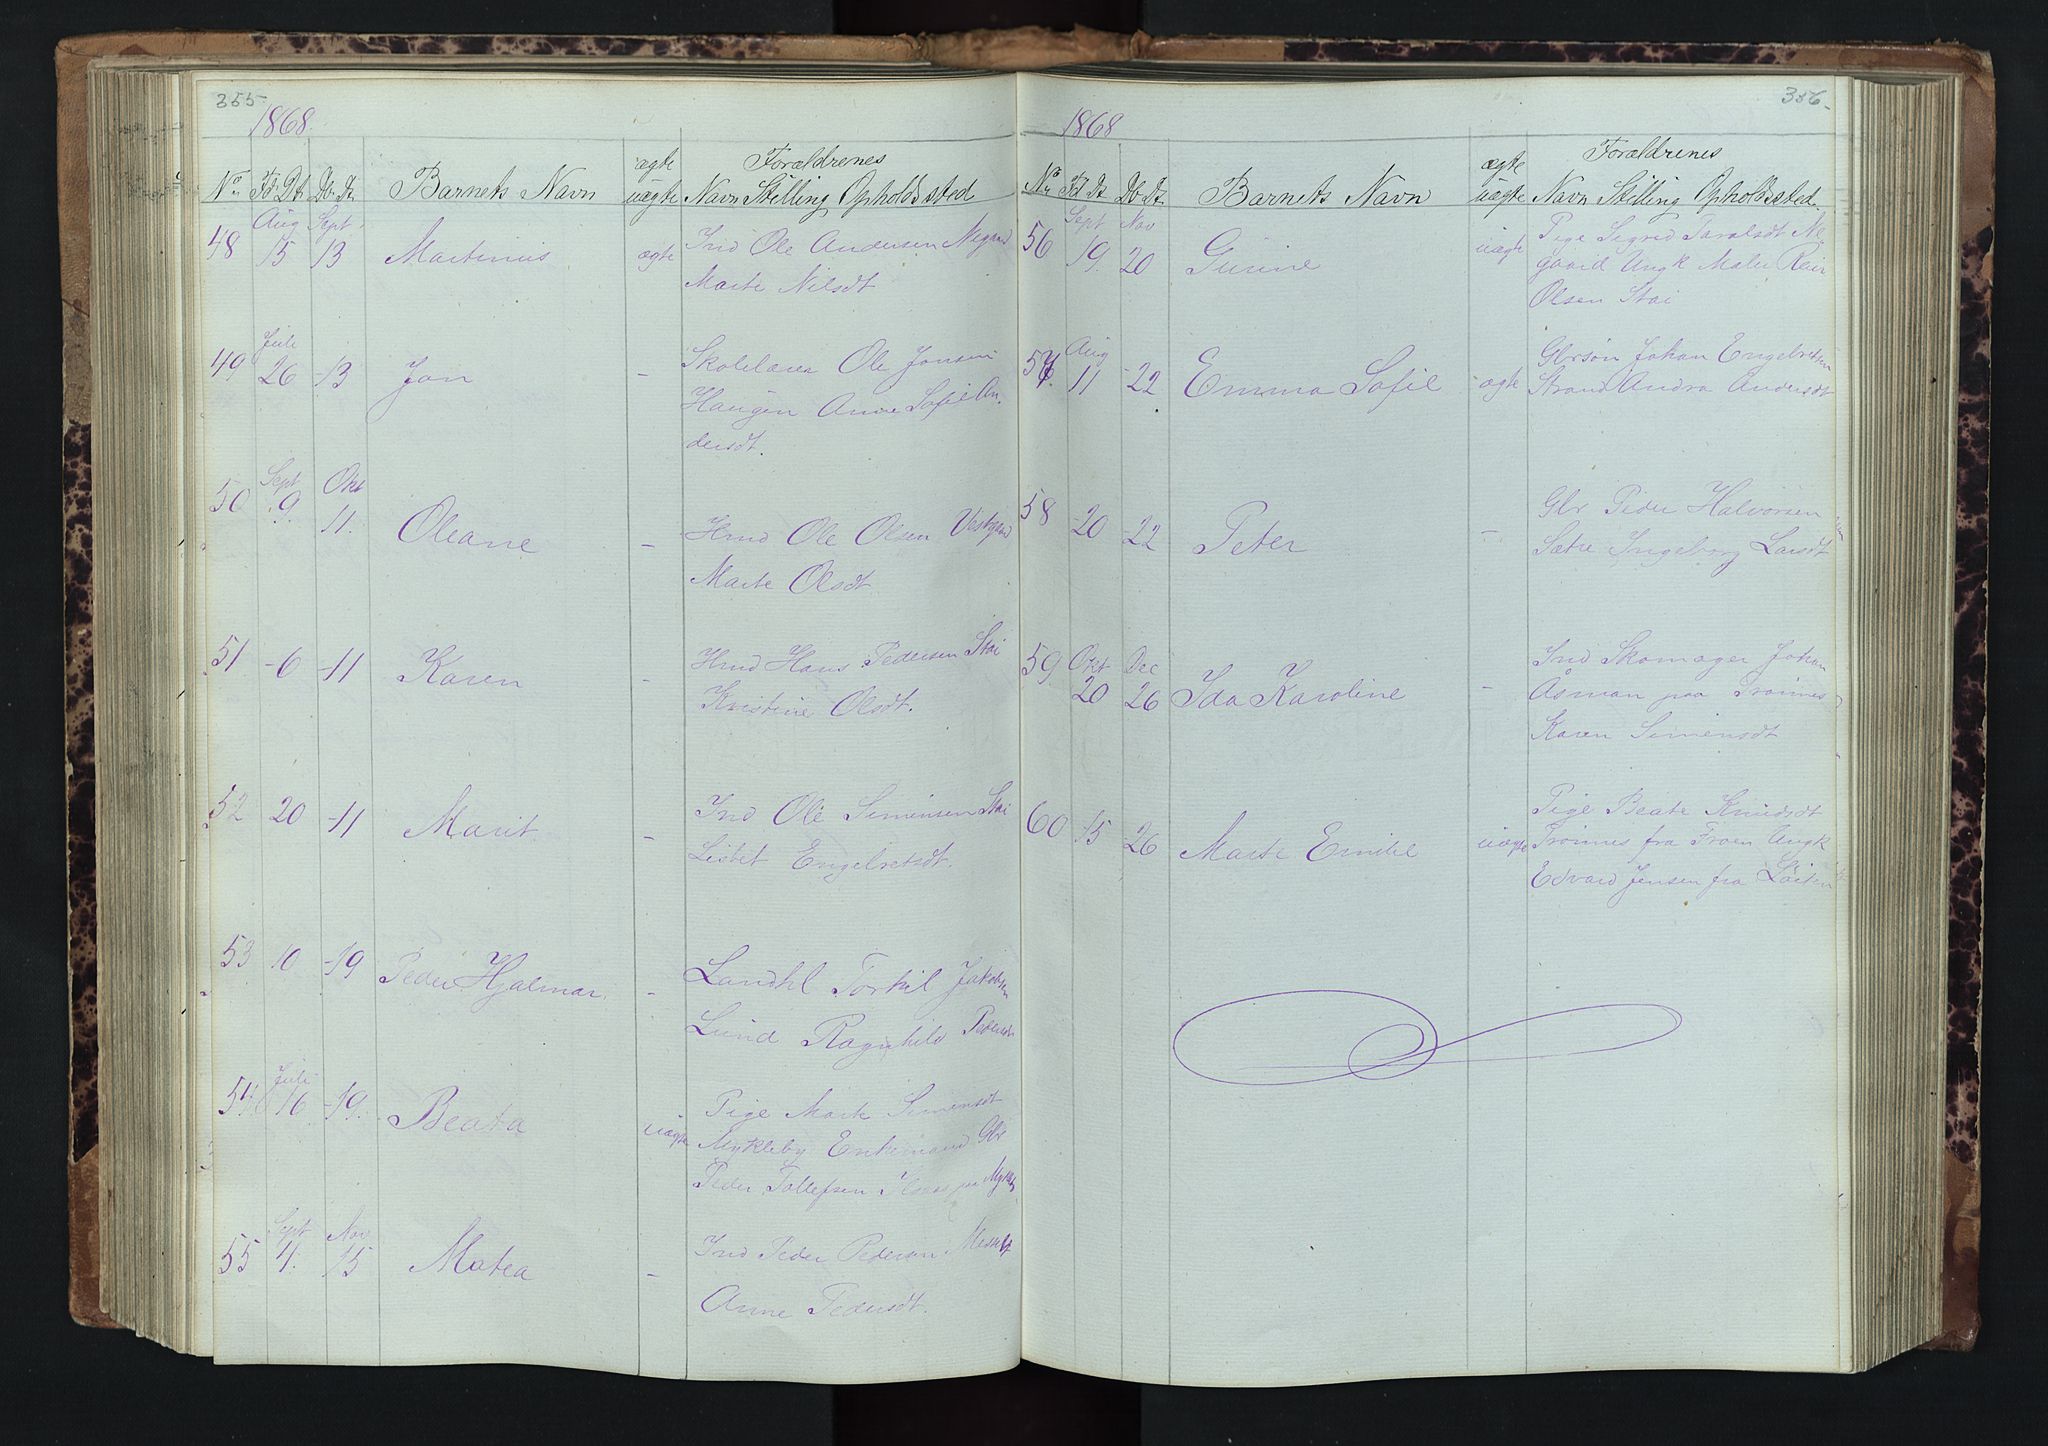 355
1868.
ægte Forældrenes
No Fd. Dt. Db. Dt. Barnets Navn uægte Navn Stilling Opholdssted
Aug Sept
48 15 13 Martinius ægte Ind Ole Andersen Negaard
Marte Nilsdt
Juli
49 26 -13 Jon - Skolelærer Ole Jonsen
Haugen Anne Sofie An-
dersdt.
Sept Okt
50 9. 11. Oleane - Hmd Ole Olsen Vestgaard
Marte Olsdt
51 -6 -11 Karen - Hmd Hans Pedersen Stai
Kristine Olsdt.
52 20 -11 Marit - Ind Ole Simensen Stai
Lisbet Engelretsdt.
53 10 -19 Peder Hjalmar. - Landhl Torkil Jakobsen
Lund Ragnhild Pedersdt
Juli
54 16 -19. Beata uægte Pige Marte Simensdt
Mykleby Enkemand Gbr
Peder Tollefsen
Sept Nov
55 4. 15 Matea - Ind Peder Pedersen Messelt
Anne Pedersdt.
356
1868
ægte Forældrenes
No Fd. Dt. Db. Dt. Barnets Navn uægte Navn Stilling Opholdssted
Sept Nov
56 19. 20 Gurine uægte Pige Sigrid Taralsdt Ne-
gaard Ungk Maler Reier
Olsen Stai
Aug
57. 11 -22 Emma Sofie ægte Gbrsøn Johan Engelretsen
Strand Andrea Andersdt
58 20 -22 Peter - Gbr Peder Halvorsen
Sætre Ingeborg Larsdt
Okt Dec
59 20 26 Ida Karoline - Ind Skomager Johan
Åsman paa Trønnes
Karen Simensdt
60 15 -26 Marte Emilie uægte Pige Beate Knudsdt
Trønnes fra Froen Ungk
Edvard Jensen fra Løiten